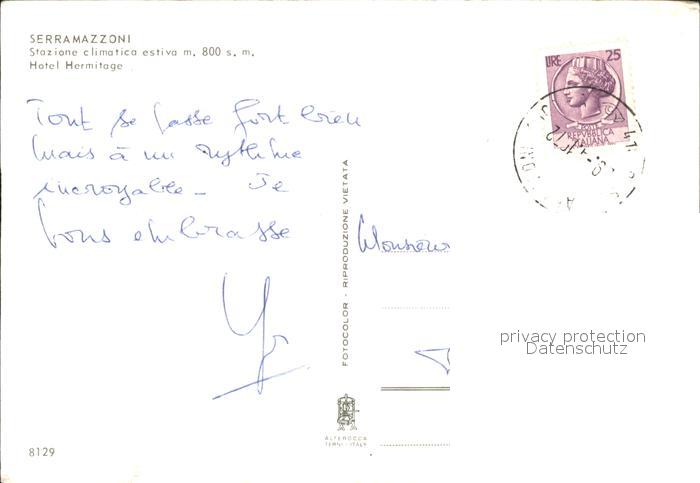 SERRAMAZZONI
Stazione climatica estiva m. 800 s. m.
Hotel Hermitage
LIRE 25
POSTE
REPUBBLICA
ITALIANA
Tout se passe fort bien
mais à un rythme
incroyable - Je
vous embrasse
Monsieur
FOTOCOLOR - RIPRODUZIONE VIETATA
privacy protection
Datenschutz
ALTEROCCA
TERNI - ITALY
8129